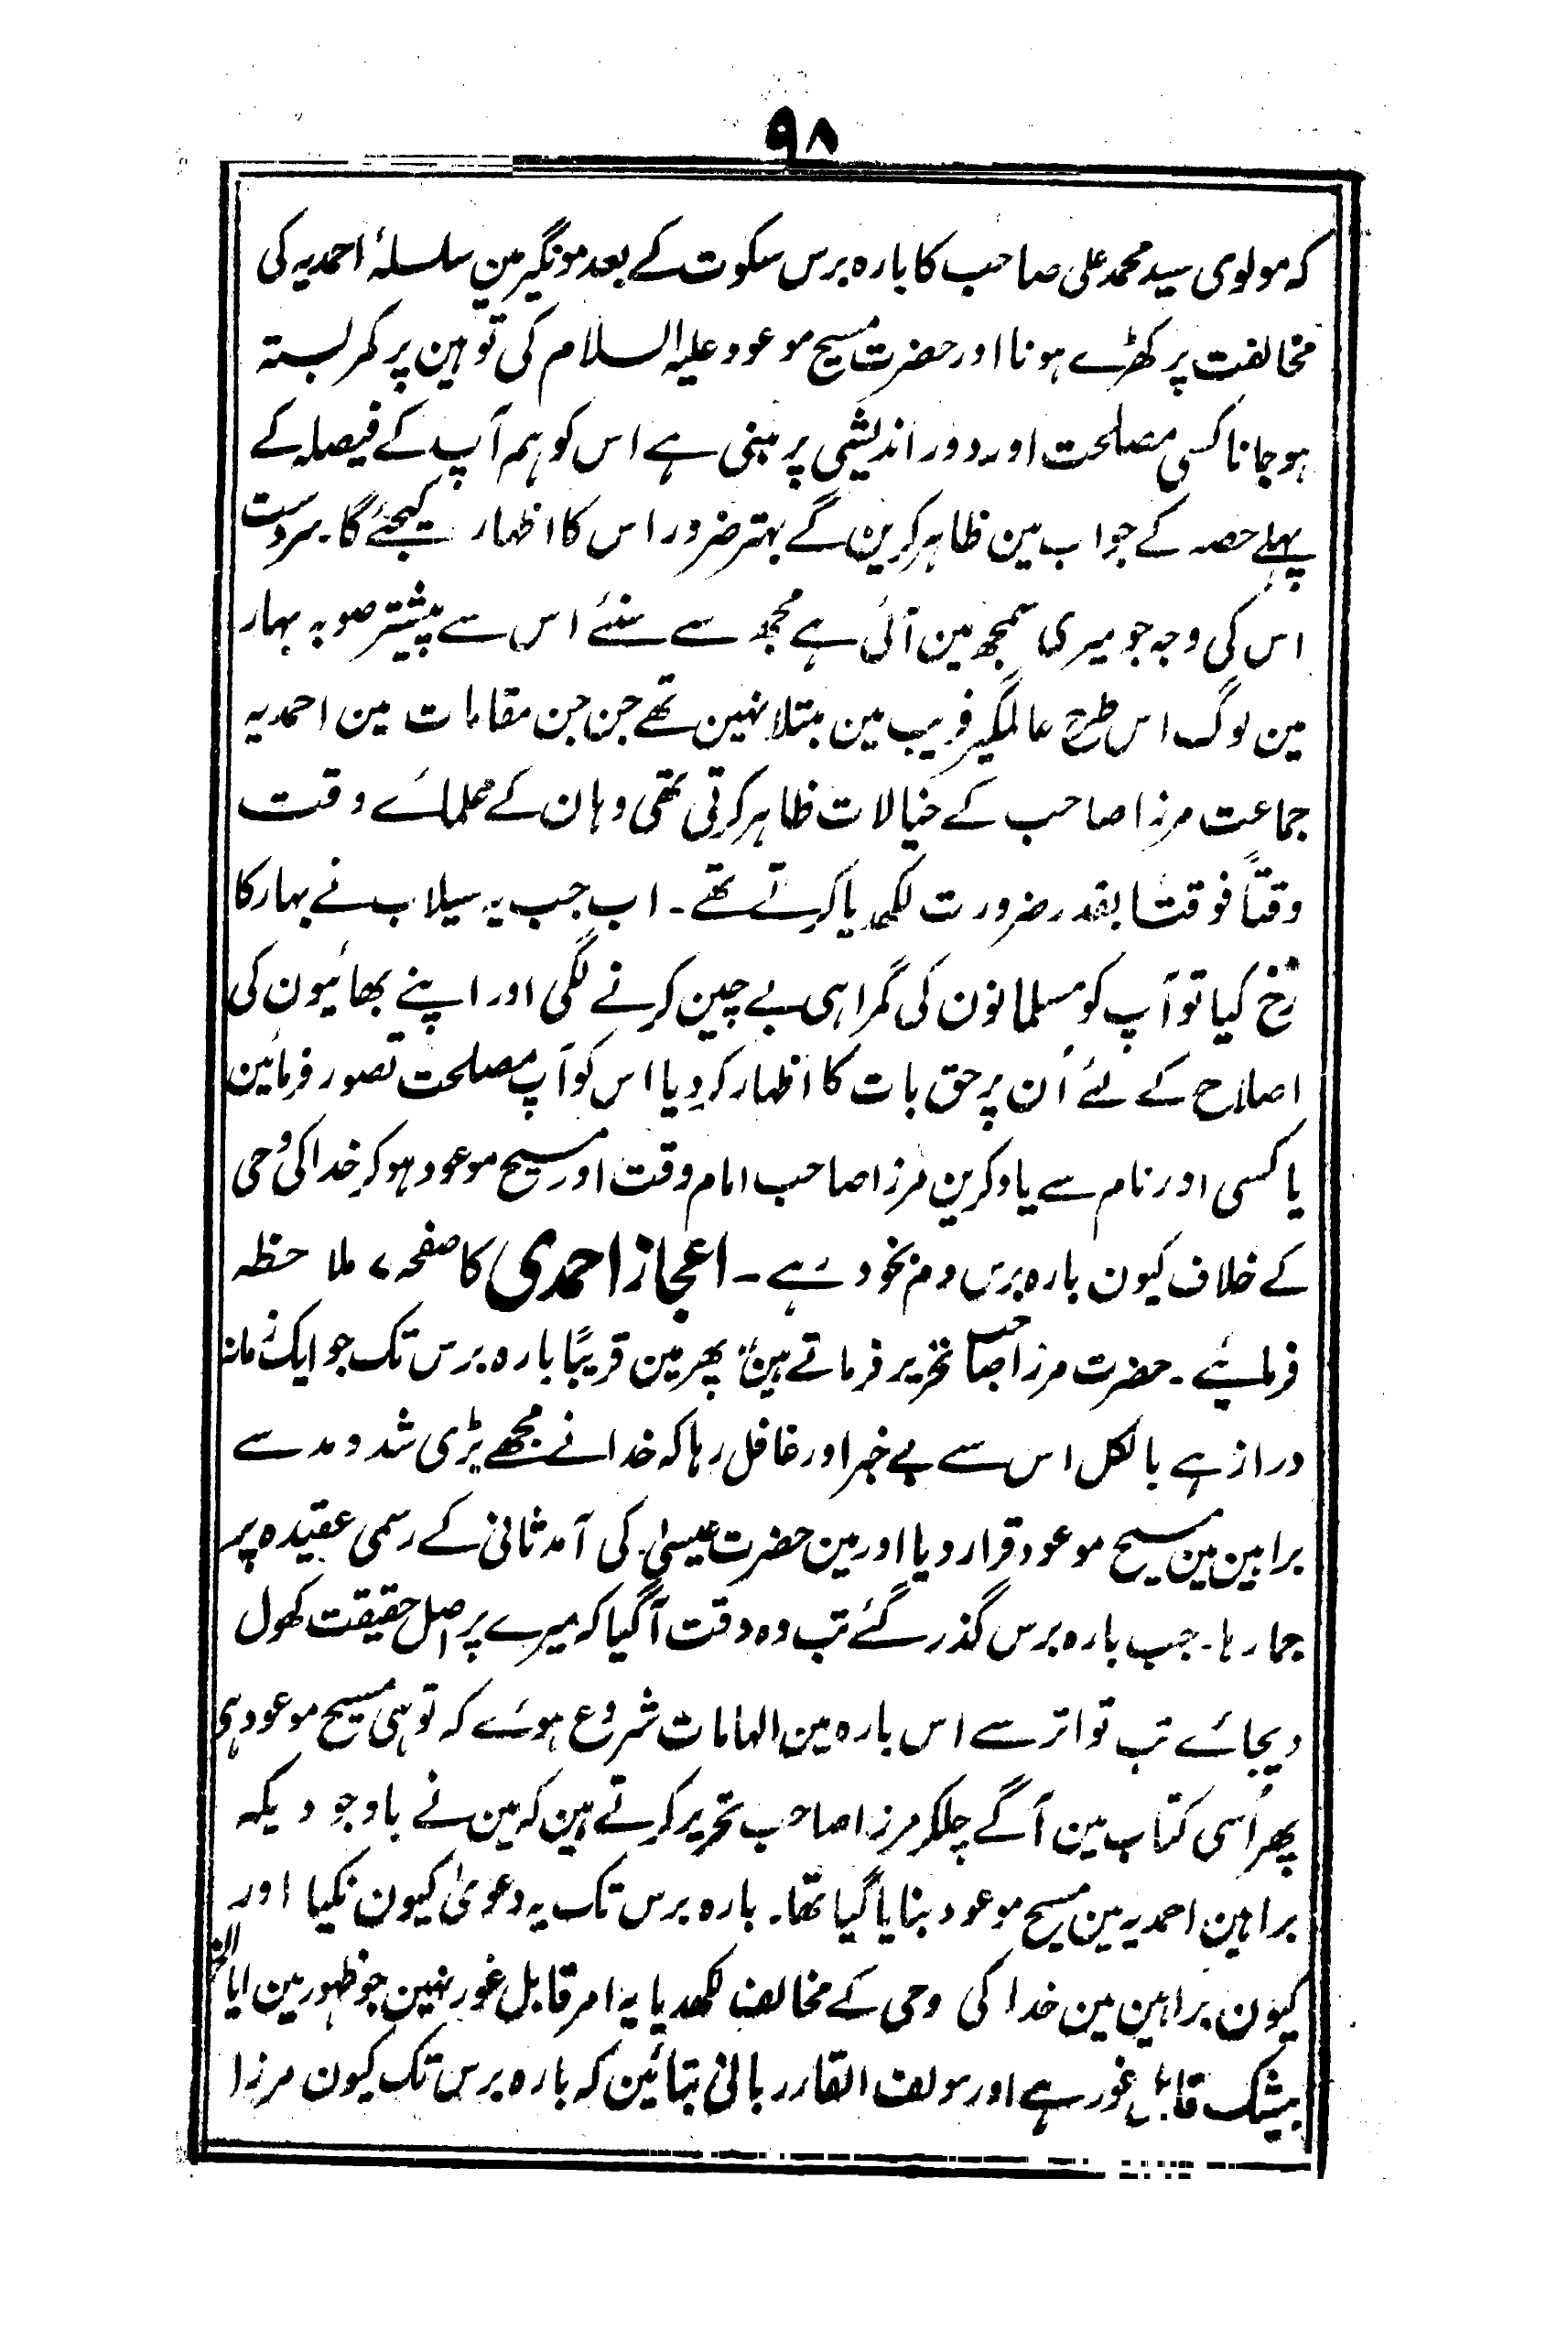 ۹۸
کہ مولوی سید محمد علی صاحب کا بارہ برس سکوت کے بعد مونگیر مین سلسلۂ احمدیہ کی
مخالفت پر کھڑے ہونا اور حضرت مسیح موعود علیہ السلام کی توہین پر کمر بستہ
ہو جانا کسی مصلحت اور دور اندیشی پر مبنی ہے اس کو ہم آپ کے فیصلہ کے
پہلے حصہ کے جواب مین ظاہر کرین گے بہتر ضرور اس کا اظہار کیجئے گا۔ سردست
اس کی وجہ جو میری سمجھ مین آئی ہے مجھ سے سنئے اس سے پیشتر صوبہ بہار
مین لوگ اس طرح عالمگیر فریب مین مبتلا نہین تھے جن جن مقامات مین احمدیہ
جماعت مرزا صاحب کے خیالات ظاہر کرتی تھی وہان کے علمائے وقت
وقتاً فوقتا بقدر ضرورت لکھدیا کرتے تھے۔ اب جب یہ سیلاب نے بہار کا
رُخ کیا تو آپ کو مسلمانون کی گمراہی بے چین کرنے لگی اور اپنے بھائیون کی
اصلاح کے لئے اُن پر حق بات کا اظہار کر دیا اس کو آپ مصلحت تصور فرمائین
یا کسی اور نام سے یاد کرین مرزا صاحب امام وقت اور مسیح موعود ہو کر خدا کی وحی
کے خلاف کیون بارہ برس دم بخود رہے ۔ اعجاز احمدی کا صفحہ ۷ ملاحظہ
فرمائیے ۔ حضرت مرزا صاحب تحریر فرماتے ہین "پھر مین قریبًا بارہ برس تک جو ایک زمانہ
دراز ہے بالکل اس سے بے خبر اور غافل رہا کہ خدا نے مجھے بڑی شد و مد سے
براہین مین مسیح موعود قرار دیا اور مین حضرت عیسیٰ کی آمد ثانی کے رسمی عقیدہ پر
جما رہا۔ جب بارہ برس گذر گئے تب وہ وقت آگیا کہ میرے پر اصل حقیقت کھول
دیجائے تب تواتر سے اس بارہ مین الہامات شروع ہوئے کہ تو ہی مسیح موعود ہی
پھر اُسی کتاب مین آگے چلکر مرزا صاحب تحریر کرتے ہین کہ مین نے باوجودیکہ
براہین احمدیہ مین مسیح موعود بنایا گیا تھا۔ بارہ برس تک یہ دعویٰ کیون نکیا اور
کیون براہین مین خدا کی وحی کے مخالف لکھدیا یہ امر قابل غور نہین جو ظہور مین آیا
بیشک قابل غور ہے اور مولف القار ربانی بتائین کہ بارہ برس تک کیون مرزا